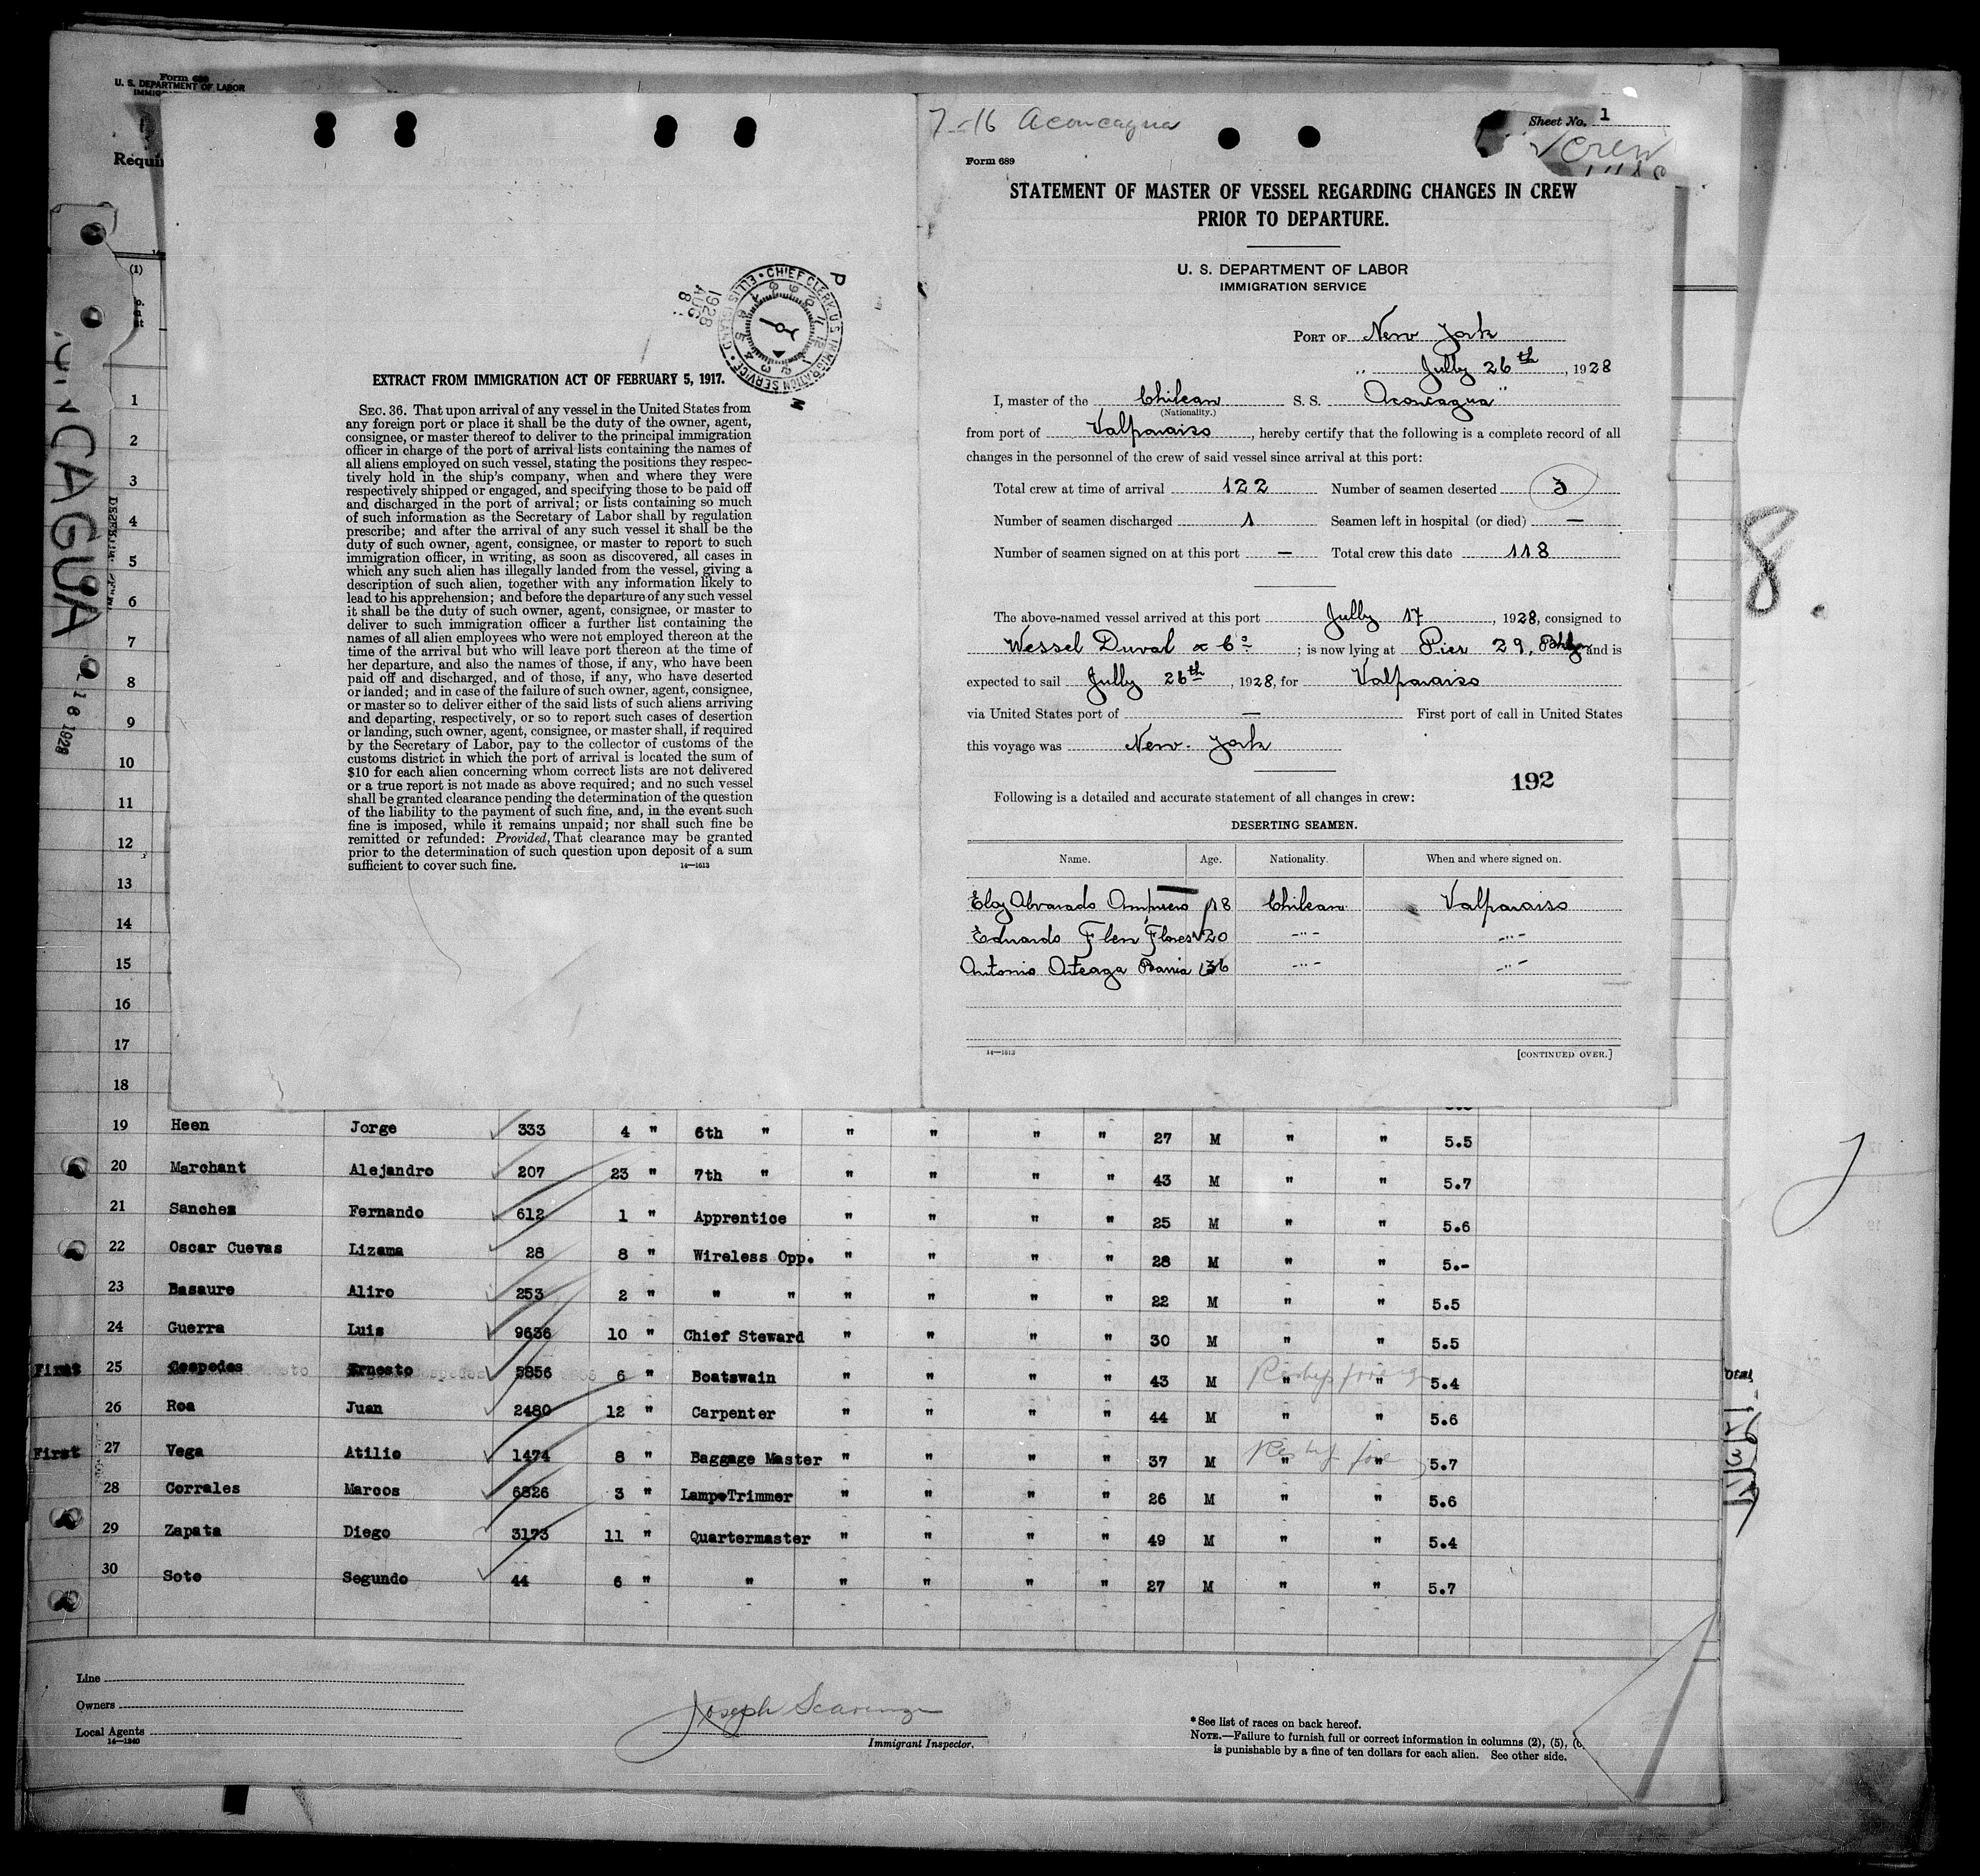 Form 689
U. S. DEPARTMENT OF LABOR
Requi
(1)
CAGUA
1 8 1928
EXTRACT FROM IMMIGRATION ACT OF FEBRUARY 5, 1917.
SEC. 36. That upon arrival of any vessel in the United States from
any foreign port or place it shall be the duty of the owner, agent,
consignee, or master thereof to deliver to the principal immigration
officer in charge of the port of arrival lists containing the names of
all aliens employed on such vessel, stating the positions they respec-
tively hold in the ship's company, when and where they were
respectively shipped or engaged, and specifying those to be paid off
and discharged in the port of arrival; or lists containing so much
of such information as the Secretary of Labor shall by regulation
prescribe; and after the arrival of any such vessel it shall be the
duty of such owner, agent, consignee, or master to report to such
immigration officer, in writing, as soon as discovered, all cases in
which any such alien has illegally landed from the vessel, giving a
description of such alien, together with any information likely to
lead to his apprehension; and before the departure of any such vessel
it shall be the duty of such owner, agent, consignee, or master to
deliver to such immigration officer a further list containing the
names of all alien employees who were not employed thereon at the
time of the arrival but who will leave port thereon at the time of
her departure, and also the names of those, if any, who have been
paid off and discharged, and of those, if any, who have deserted
or landed; and in case of the failure of such owner, agent, consignee,
or master so to deliver either of the said lists of such aliens arriving
and departing, respectively, or so to report such cases of desertion
or landing, such owner, agent, consignee, or master shall, if required
by the Secretary of Labor, pay to the collector of customs of the
customs district in which the port of arrival is located the sum of
$10 for each alien concerning whom correct lists are not delivered
or a true report is not made as above required; and no such vessel
shall be granted clearance pending the determination of the question
of the liability to the payment of such fine, and, in the event such
fine is imposed, while it remains unpaid; nor shall such fine be
remitted or refunded: Provided, That clearance may be granted
prior to the determination of such question upon deposit of a sum
sufficient to cover such fine. 14—1613
CHIEF CLERK U.S. IMMIGRATION SERVICE • ELLIS ISLAND
1928 AUG 8 P M
7-16 Aconcagua
Sheet No. 1
Crew
Form 689
STATEMENT OF MASTER OF VESSEL REGARDING CHANGES IN CREW
PRIOR TO DEPARTURE.
U. S. DEPARTMENT OF LABOR
IMMIGRATION SERVICE
PORT OF New York
" Jully 26th, 1928
I, master of the Chilean S. S. Aconcagua"
(Nationality.)
from port of Valparaiso, hereby certify that the following is a complete record of all
changes in the personnel of the crew of said vessel since arrival at this port:
Total crew at time of arrival 122 Number of seamen deserted 3
Number of seamen discharged 1 Seamen left in hospital (or died) —
Number of seamen signed on at this port — Total crew this date 118
The above-named vessel arrived at this port Jully 17, 1928, consigned to
Wessel Duval & Cº; is now lying at Pier 29, and is
expected to sail Jully 26th, 1928, for Valparaiso
via United States port of — First port of call in United States
this voyage was New-York
192
Following is a detailed and accurate statement of all changes in crew:
DESERTING SEAMEN.
Name. Age. Nationality. When and where signed on.
Eloy Alvarado Ampuero 18 Chilean Valparaiso
Eduardo Flen Flores 20 -"- -"-
Antonio Arteaga Barria 36 -"- -"-
14—1613 [CONTINUED OVER.]
8.
1
2
3
4
5
6
7
8
9
10
11
12
13
14
15
16
17
18
19 Heen Jorge 333 4 " 6th " " " " " 27 M " " 5.5
20 Marchant Alejandro 207 23 " 7th " " " " " 43 M " " 5.7
21 Sanchez Fernando 612 1 " Apprentice " " " " 25 M " " 5.6
22 Oscar Cuevas Lizama 28 8 " Wireless Opp. " " " " 28 M " " 5.-
23 Basaure Aliro 253 2 " " " " " " " 22 M " " 5.5
24 Guerra Luis 9636 10 " Chief Steward " " " " 30 M " " 5.5
First 25 Cespedes Ernesto 5856 6 " Boatswain " " " " 43 M " " 5.4
26 Roa Juan 2480 12 " Carpenter " " " " 44 M " " 5.6
First 27 Vega Atilio 1474 8 " Baggage Master " " " " 37 M " " 5.7
28 Corrales Marcos 6826 3 " Lamp Trimmer " " " " 26 M " " 5.6
29 Zapata Diego 3173 11 " Quartermaster " " " " 49 M " " 5.4
30 Soto Segundo 44 6 " " " " " " 27 M " " 5.7
Line
Owners
Local Agents
14—1240
Joseph
Immigrant Inspector.
* See list of races on back hereof.
NOTE.—Failure to furnish full or correct information in columns (2), (5), (6
is punishable by a fine of ten dollars for each alien. See other side.